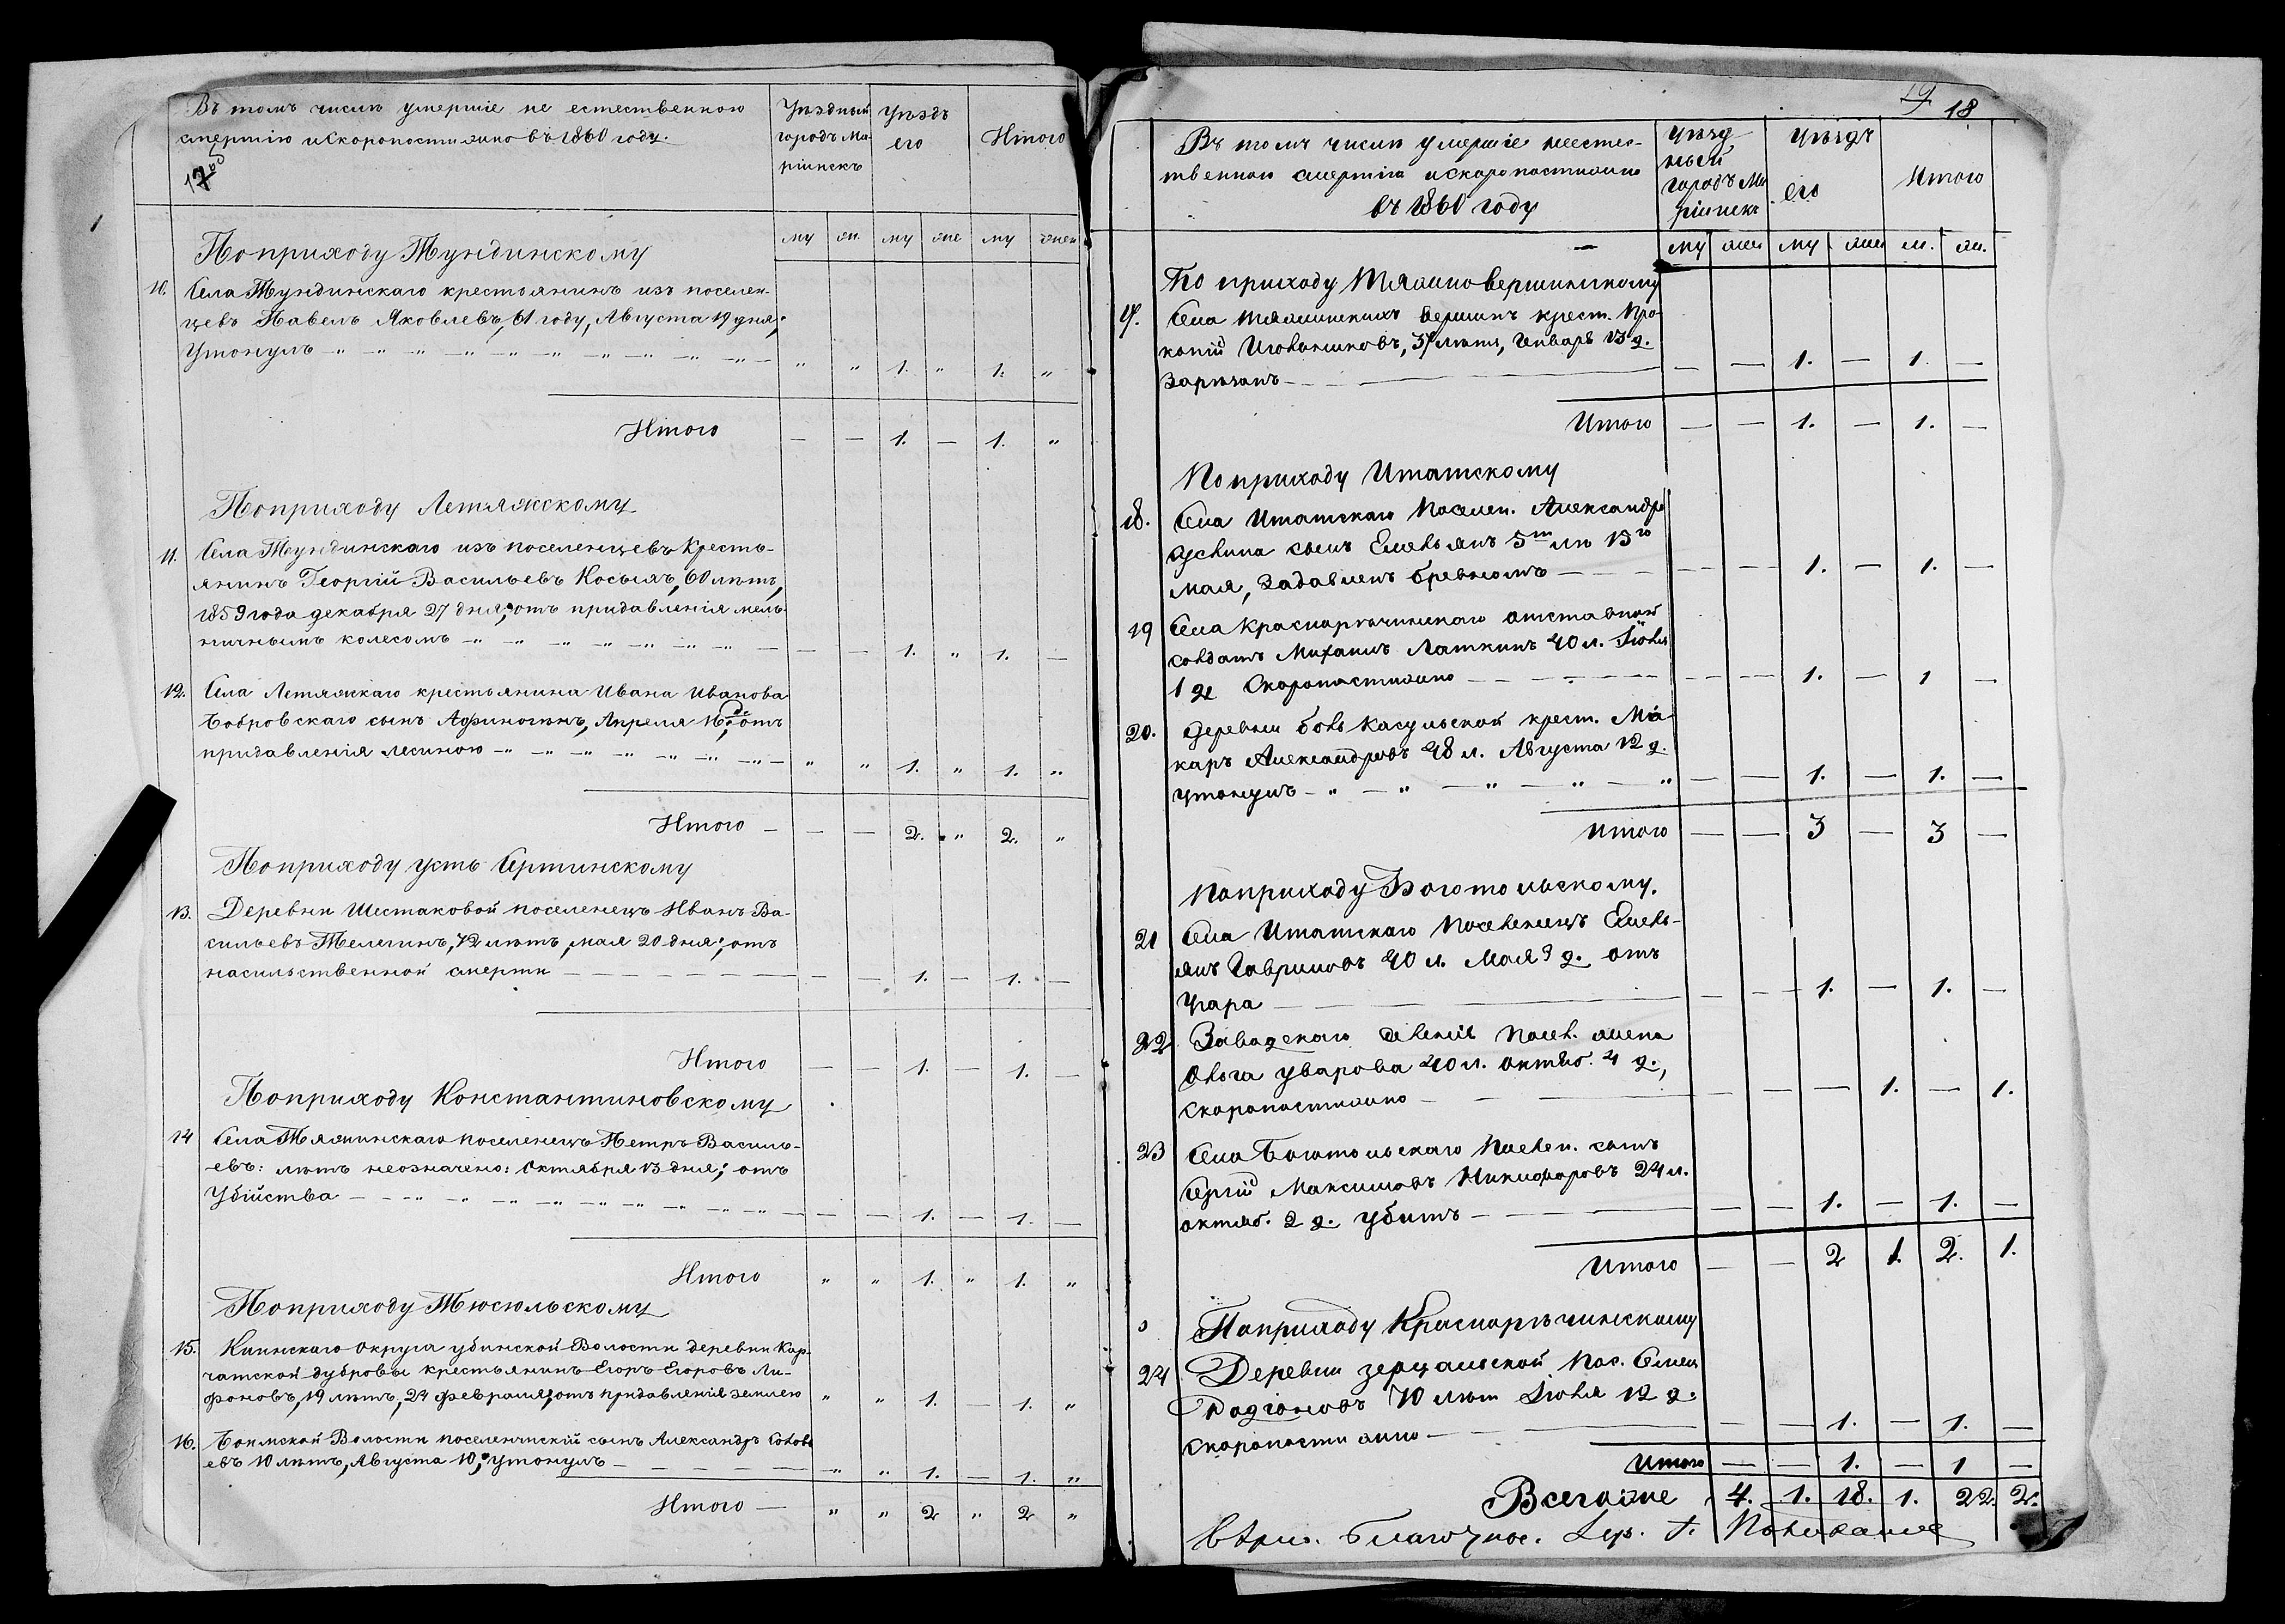 Въ томъ числѣ умершіе не естественною
смертію и скоропостижно въ 1860 году.
Уѣздный
городъ Ма-
ріинскъ
Уѣздъ
его
Итого
17
му же. му же му жен
По приходу Тундинскому
10. Села Тундинскаго крестьянинъ изъ поселен-
цевъ Павелъ Яковлевъ, 61 году, Августа 19 дня;
Утонулъ „ „ 1. „ 1. „
Итого — — 1. — 1. „
По приходу Летяжскому
11. Села Тундинскаго изъ поселенцевъ Кресть-
янинъ Георгій Васильевъ Косыхъ, 60 лѣтъ,
1859 года декабря 27 дня, отъ придавленія мель-
ничнымъ колесомъ — — 1. „ 1. —
12. Села Летяжскаго крестьянина Ивана Иванова
Бобровскаго сынъ Афиногенъ, Апреля 16, отъ
придавленія лесиною „ „ 1. „ 1. „
Итого — — — 2. „ 2. „
По приходу усть Сертинскому
13. Деревни Шестаковой поселенецъ Иванъ Ва-
сильевъ Телегинъ, 72 лѣтъ, мая 20 дня; отъ
насильственной смерти — — 1. — 1. —
Итого — — 1. — 1. —
По приходу Константиновскому
14 Села Тяжинскаго поселенецъ Петръ Василь-
евъ: лѣтъ неозначено: Октября 13 дня; отъ
Убійства — — 1. — 1. —
Итого „ „ 1. „ 1. „
По приходу Тюсюльскому
15. Каинскаго Округа убинской Волости деревни Кар-
чатской дубровы крестьянинъ Егоръ Егоровъ Ли-
фоновъ, 19 лѣтъ, 24 февраля, отъ придавленія землею „ „ 1. — 1. „
16. Боимской Волости поселенчискій сынъ Александръ Соловь
евъ 10 лѣтъ, Августа 10, утонулъ — „ „ 1. — 1. „
Итого — „ „ 2 „ 2 „
18
Въ томъ числѣ умершіе неестес-
твенною смертію и скоропостижно
въ 1860 году
Уѣзд
ный
городъ Ма
ріинскъ
Уѣздъ
его
Итого
му жен му жен м. ж.
По приходу Тяжино вершинскому
17. Села Тяжинскихъ Вершинъ крест. Про-
копій Иголкинъ 37 лѣтъ, Генваря 13 д.
Зарѣзанъ — — 1. — 1. —
Итого — — 1. — 1. —
По приходу Итатскому
18. Села Итатскаго Поселен. Александра
сынъ Емельянъ 5ти лѣ 13го
мая, задавленъ бревномъ — — 1. — 1. —
19 Села Краснорѣчинскаго отставной
солдатъ Михаилъ Латкинъ 40 л. Іюля
1 де Скоропостижно — — 1. — 1 —
20. Деревни боль Касульской крест. Ма-
каръ Александровъ 48 л. Августа 12 д.
утонулъ — — 1. — 1. —
Итого — — 3 — 3 —
По приходу Боготольскому.
21 Села Итатскаго Поселенецъ Емель-
янъ Гавриловъ 40 л. Мая 9 д. отъ
Угара — — 1. — 1. —
22 Заводскаго селенія посел. жена
Ольга Уварова 40 л. октяб. 4 д.,
скоропостижно — — — 1. — 1.
23 Села Боготольскаго Поселен. сынъ
Сергій Максимовъ Никифоровъ 24 л.
октяб. 2 д. убитъ — — 1. — 1. —
Итого — — 2 1. 2. 1.
По приходу Краснорѣчинскому
24 Деревни зерцальской Пос. Семен
Родіоновъ 70 лѣт Іюля 12 д.
скоропостижно — — 1. — 1. —
Итого — — 1. — 1 —
Всего же 4. 1. 18. 1. 22. 2.